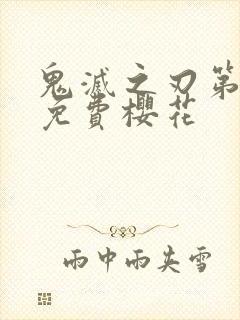 鬼滅之刃第
免費櫻花
雨中雨夾雪